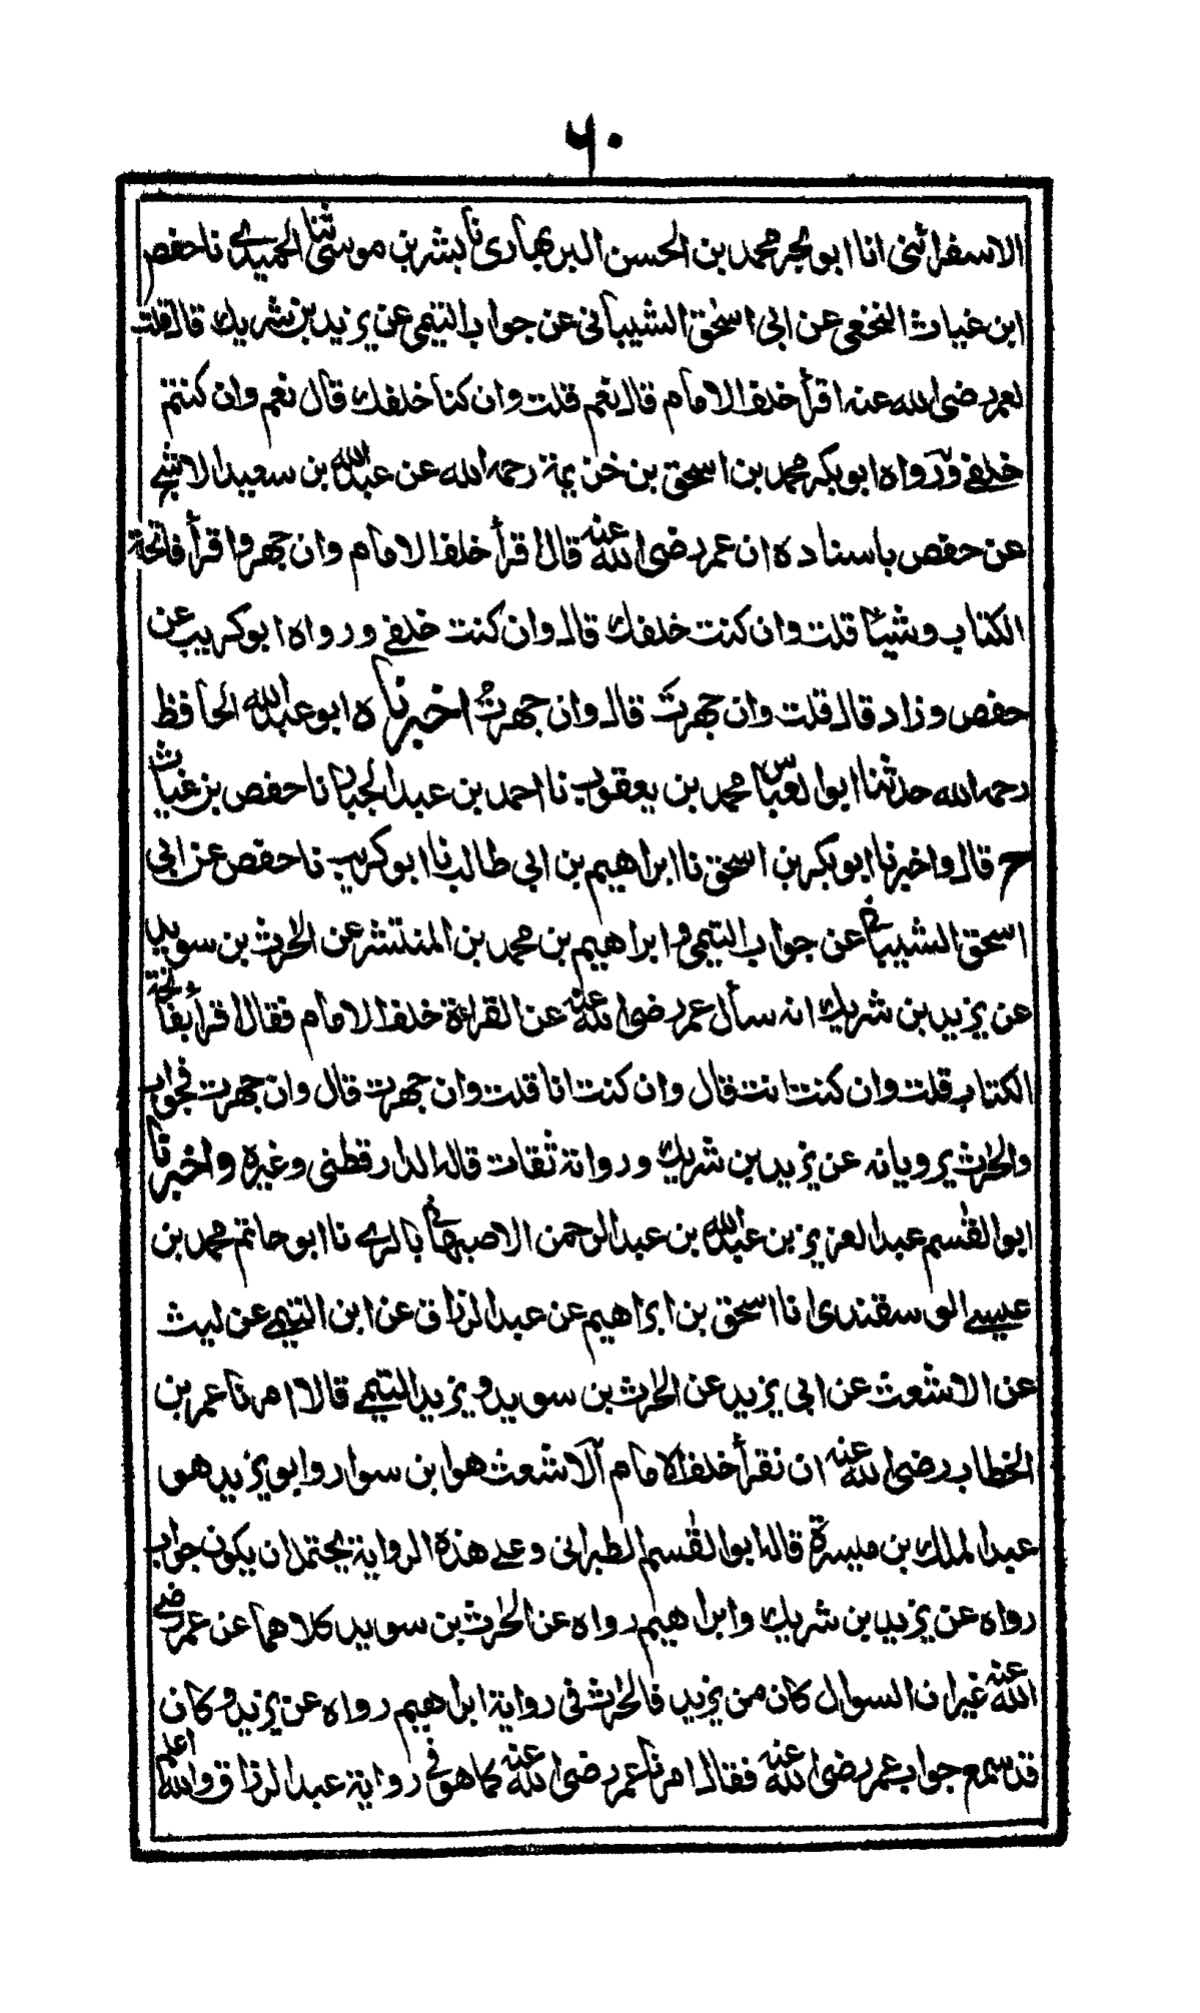 ٦٠
الاسفرائنى انا ابو بحر محمد بن الحسن البربهارى نا بشر بن موسى ثنا الحميدے نا حفص
ابن غياث النخعى عن ابى اسحٰق الشيبانى عن جواب التيمى عن يزيد بن شريك قال قلت
لعمر رضى الله عنه اقرأ خلف الامام قال نعم قلت وان كنا خلفك قال نعم وان كنتم
خلفے ورواه ابو بكر محمد بن اسحق بن خزيمة رحمه الله عن عبد الله بن سعيد الاشج
عن حفص باسناده ان عمر رضى الله عنه قال اقرأ خلف الامام وان جهر واقرأ فاتحة
الكتاب وشيئا قلت وان كنت خلفك قال وان كنت خلفے ورواه ابو كريب عن
حفص وزاد قال قلت وان جهرتَ قال وان جهرتُ اخبرناه ابو عبد الله الحافظ
رحمه الله حدثنا ابو العباس محمد بن يعقوب نا احمد بن عبد الجبار نا حفص بن غياث
ح قال واخبرنا ابو بكر بن اسحق نا ابراهيم بن ابى طالب نا ابو كريب نا حفص عن ابى
اسحق الشيبانى عن جواب التيمى و ابراهيم بن محمد بن المنتشر عن الحٰرث بن سويد
عن يزيد بن شريك انه سأل عمر رضى الله عنه عن القراءة خلف الامام فقال اقرأ بفاتحة
الكتاب قلت وان كنت انت قال وان كنت انا قلت وان جهرت قال وان جهرت فجواب
والحٰرث يرويانه عن يزيد بن شريك ورواته ثقات قاله الدارقطنى وغيره واخبرنا
ابو القٰسم عبد العزيز بن عبد الله بن عبد الرحمن الاصبهانى بالرے نا ابو حاتم محمد بن
عيسے الوسقندى انا اسحق بن ابراهيم عن عبد الرزاق عن ابن التيمے عن ليث
عن الاشعث عن ابى يزيد عن الحٰرث بن سويد ويزيد التيمے قالا امرنا عمر بن
الخطاب رضى الله عنه ان نقرأ خلف الامام الاشعث هو ابن سوار وابو يزيد هو
عبد الملك بن ميسرة قاله ابو القٰسم الطبرانى وعلے هذه الرواية يحتمل ان يكون جواب
رواه عن يزيد بن شريك وابراهيم رواه عن الحٰرث بن سويد كلاهما عن عمر رضے
الله عنه غير ان السوال كان من يزيد فالحٰرث فى رواية ابراهيم رواه عن يزيد وكان
قد سمع جواب عمر رضى الله عنه فقال امرنا عمر رضى الله عنه كما هو فى رواية عبد الرزاق والله اعلم